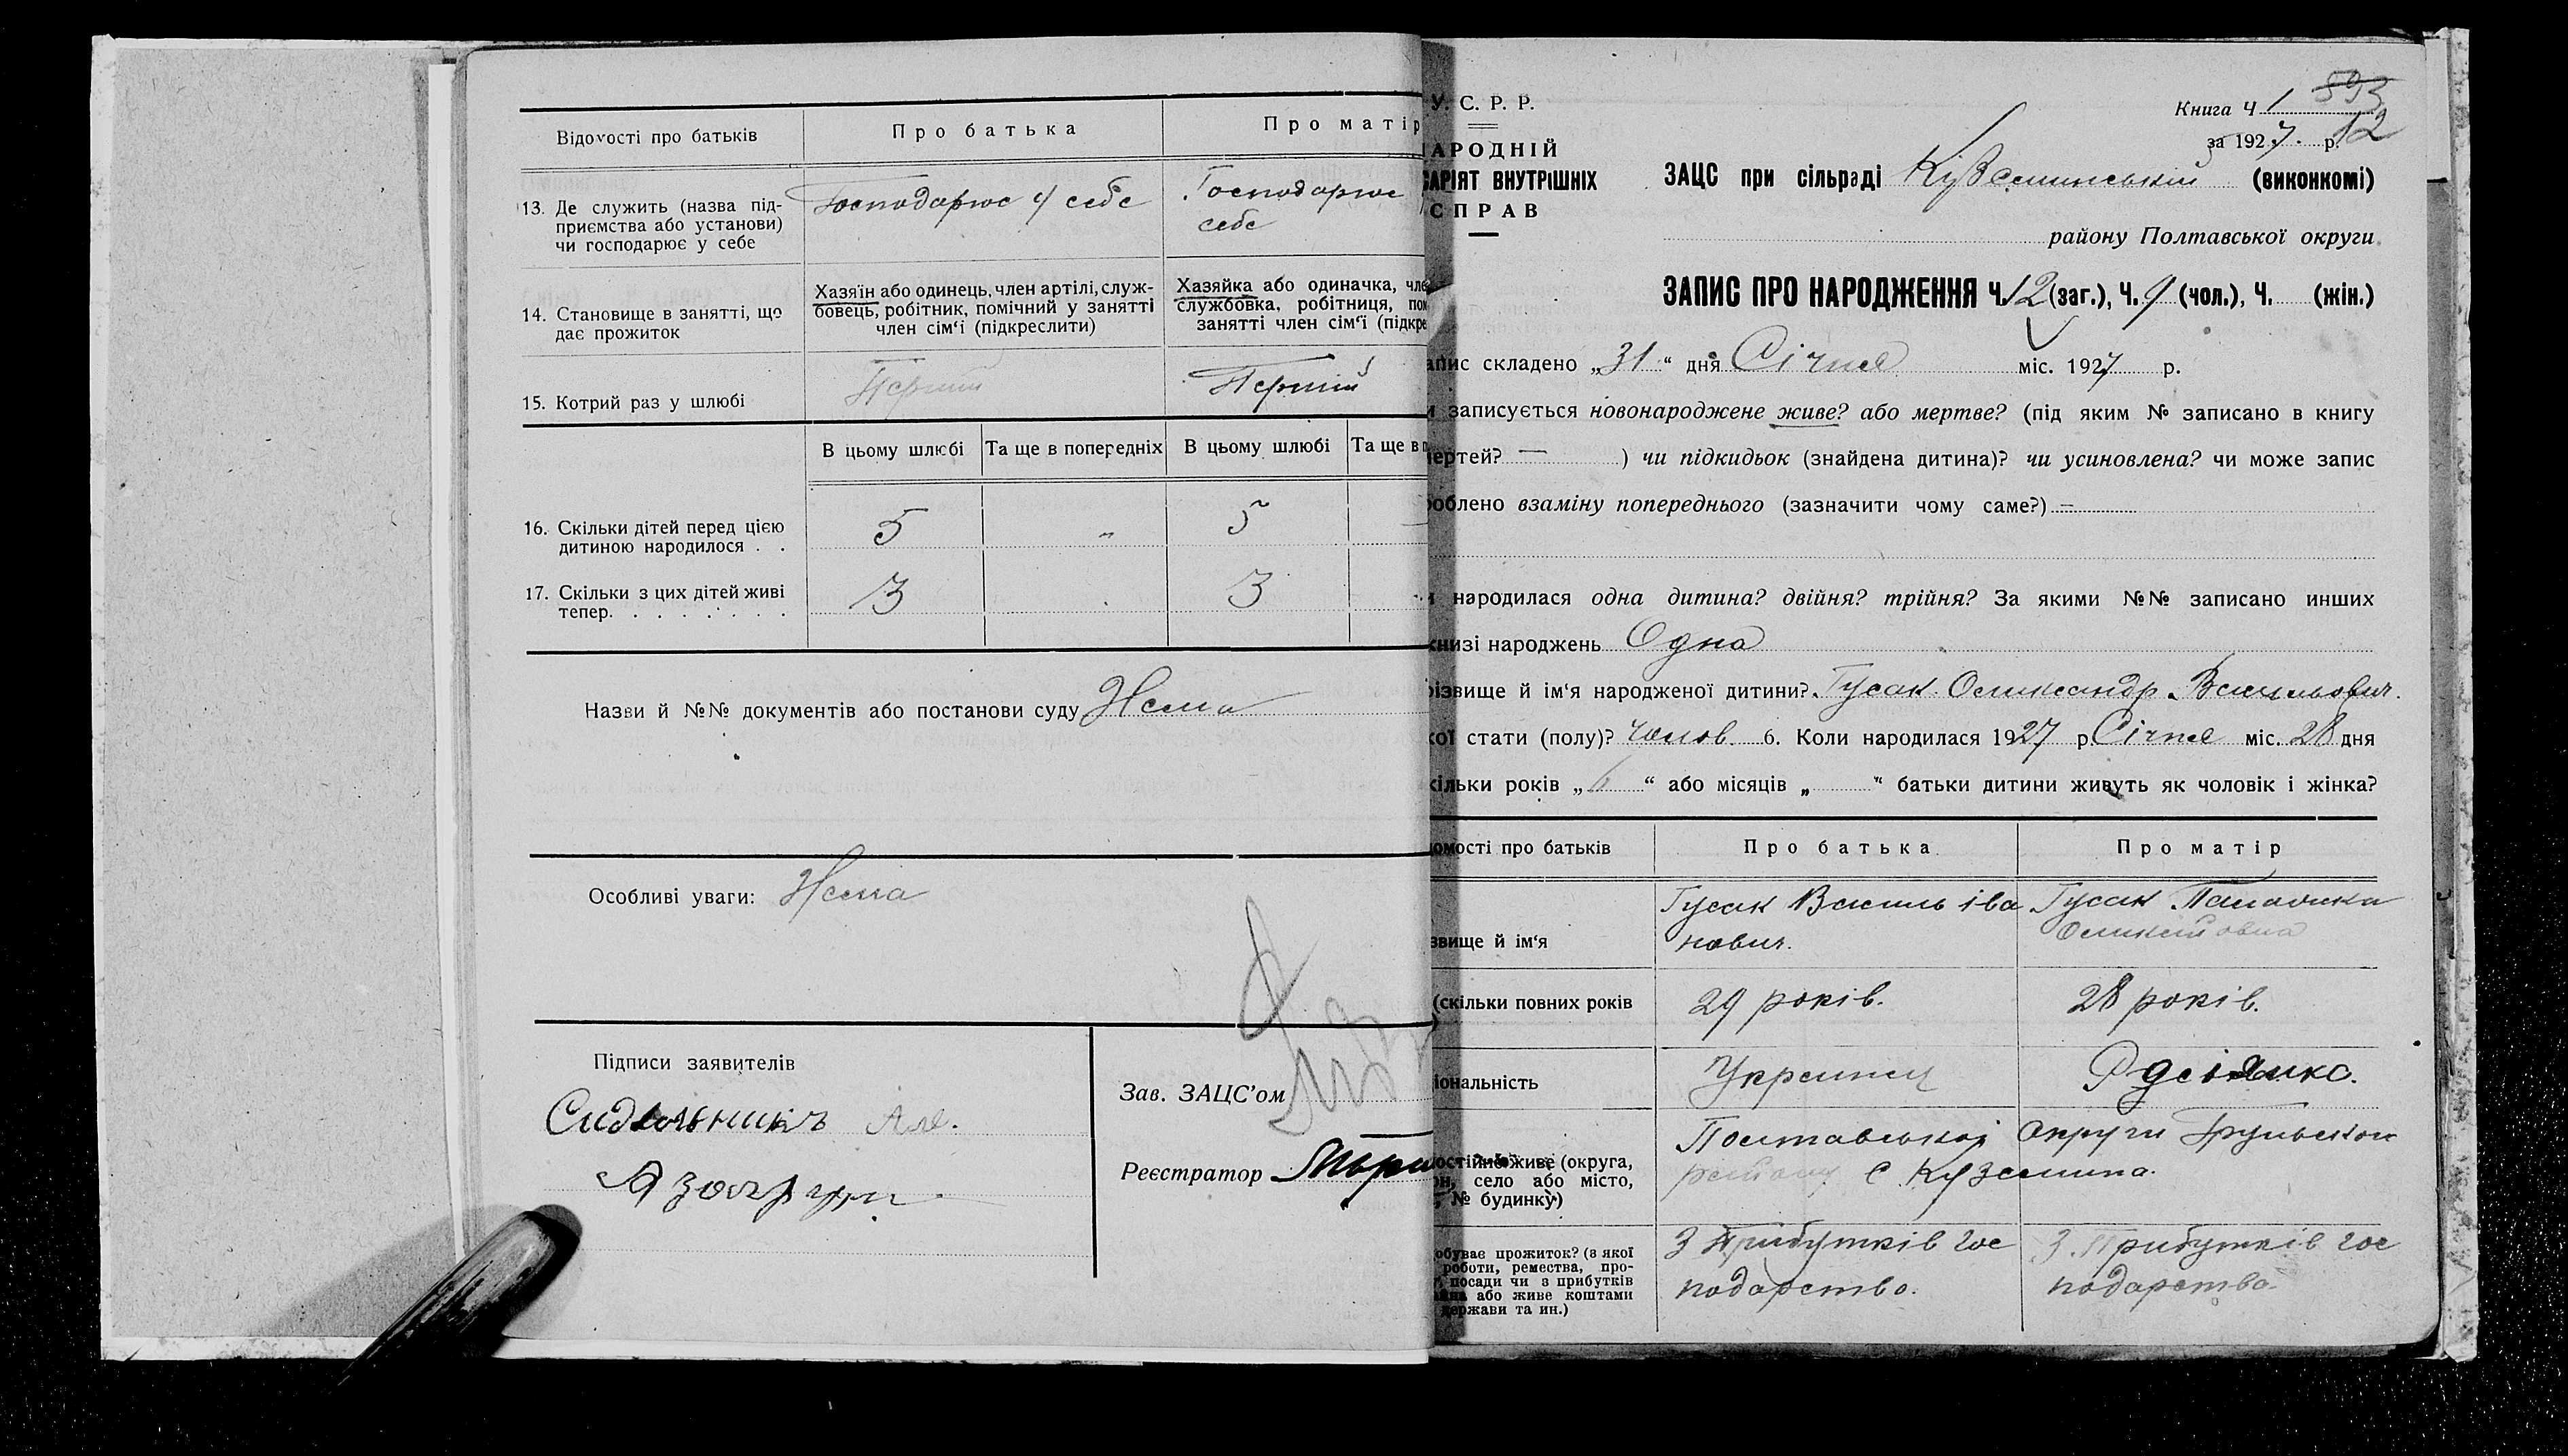 Відомості про батьків
Про батька
Про матір
13. Де служить (назва під-
приємства або установи)
чи господарює у себе
Господарює у себе
Господарює
себе
14. Становище в занятті, що
дає прожиток
Хазяїн або одинець, член артілі, служ-
бовець, робітник, помічний у занятті
член сім‘ї (підкреслити)
Хазяйка або одиначка, чле
службовка, робітниця, пом
занятті член сім‘ї (підкре
15. Котрий раз у шлюбі
Перший
Перший
В цьому шлюбі
Та ще в попередніх
В цьому шлюбі
Та ще в п
16. Скільки дітей перед цією
дитиною народилося . .
5
"
5
17. Скільки з цих дітей живі
тепер. . . . . . . .
3
3
Назви й №№ документів або постанови суду Нема
Особливі уваги: Нема
Підписи заявителів
Зав. ЗАЦС’ом
Реєстратор
У. С. Р. Р.
АРОДНІЙ
АРІЯТ ВНУТРІШНІХ
СПРАВ
Книга Ч 1
593
12
за 1927. р.
ЗАЦС при сільраді Куземинській (виконкомі)
району Полтавської округи
ЗАПИС ПРО НАРОДЖЕННЯ Ч. 12 (заг.), Ч. 9 (чол.), Ч. (жін.)
апис складено „31“ дня Січня міс. 1927 р.
и записується новонароджене живе? або мертве? (під яким № записано в книгу
мертей? — ) чи підкидьок (знайдена дитина)? чи усиновлена? чи може запис
роблено взаміну попереднього (зазначити чому саме?) —
и народилася одна дитина? двійня? трійня? За якими №№ записано инших
книзі народжень Одна
різвище й ім‘я народженої дитини? Гусак Олександр Васильович.
кої стати (полу)? Чолов. 6. Коли народилася 1927 р Січня міс. 28 дня
кільки років „6“ або місяців „ “ батьки дитини живуть як чоловік і жінка?
омості про батьків
Про батька
Про матір
звище й ім‘я
Гусак Василь Іва
нович.
Гусак Палажка
Олексіївна
(скільки повних років
29 років.
28 років.
іональність
Українец
Полтавської Округи Грунської
району С Куземина.
остійно живе (округа,
он, село або місто,
, № будинку)
обуває прожиток? (з якої
роботи, ремества, про-
посади чи з прибутків
або живе коштами
держави та ин.)
З Прибутків гос
подарство.
З Прибутків гос
подарства.